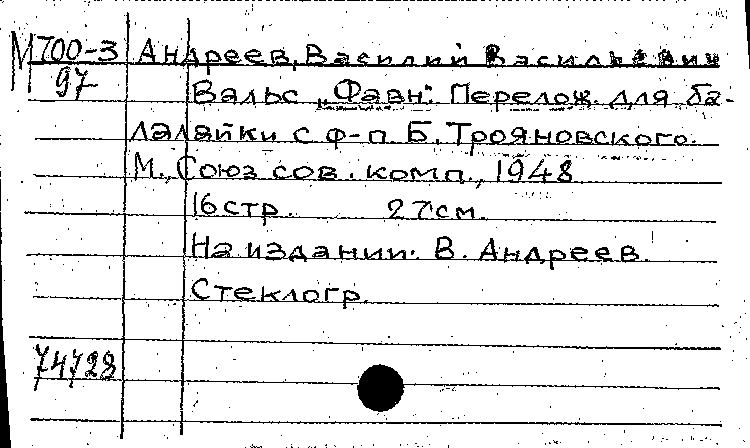 М700-3 Андреев, Василий Васильевич
97
Вальс „Фавн". Перелож. для ба-
лалайки с ф-п. Б. Трояновского.
М., Союз сов. комп., 1948
16 стр. 27 см.
На издании: В. Андреев.
Стеклогр.
74728